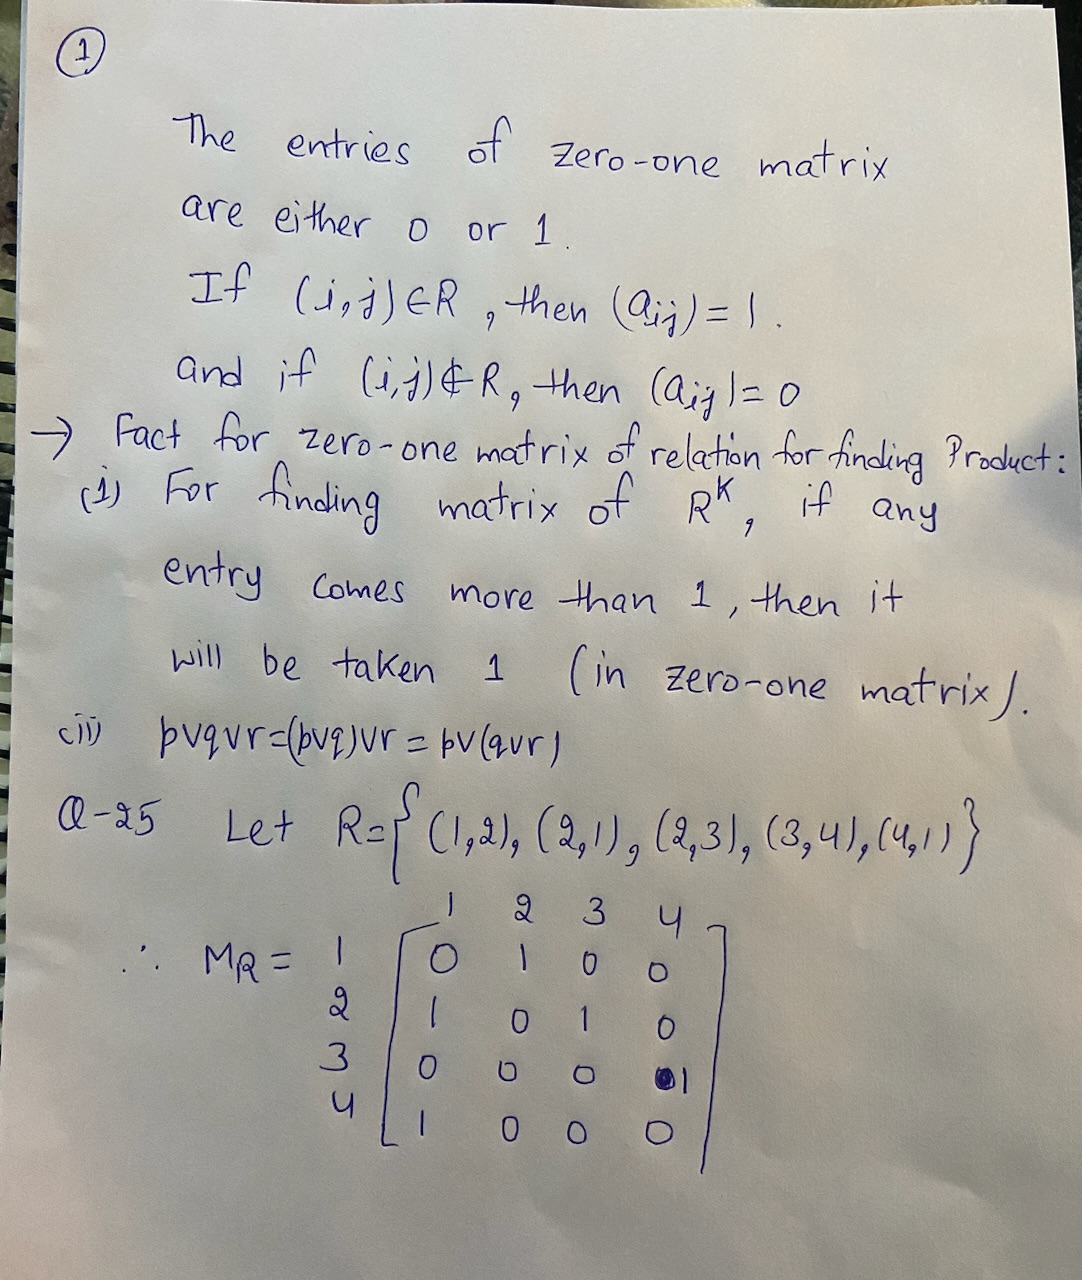 ①
The entries of zero-one matrix
are either 0 or 1.
If (i,j)∈R, then (aij)=1.
and if (i,j)∉R, then (aij)=0
→ Fact for zero-one matrix of relation for finding Product:
(i) For finding matrix of R^K, if any
entry comes more than 1, then it
will be taken 1 (in zero-one matrix).
(ii) p∨q∨r=(p∨q)∨r = p∨(q∨r)
Q-25 Let R={(1,2), (2,1), (2,3), (3,4), (4,1)}
1 2 3 4
∴ MR = 1 [0 1 0 0
2 1 0 1 0
3 0 0 0 1
4 1 0 0 0]